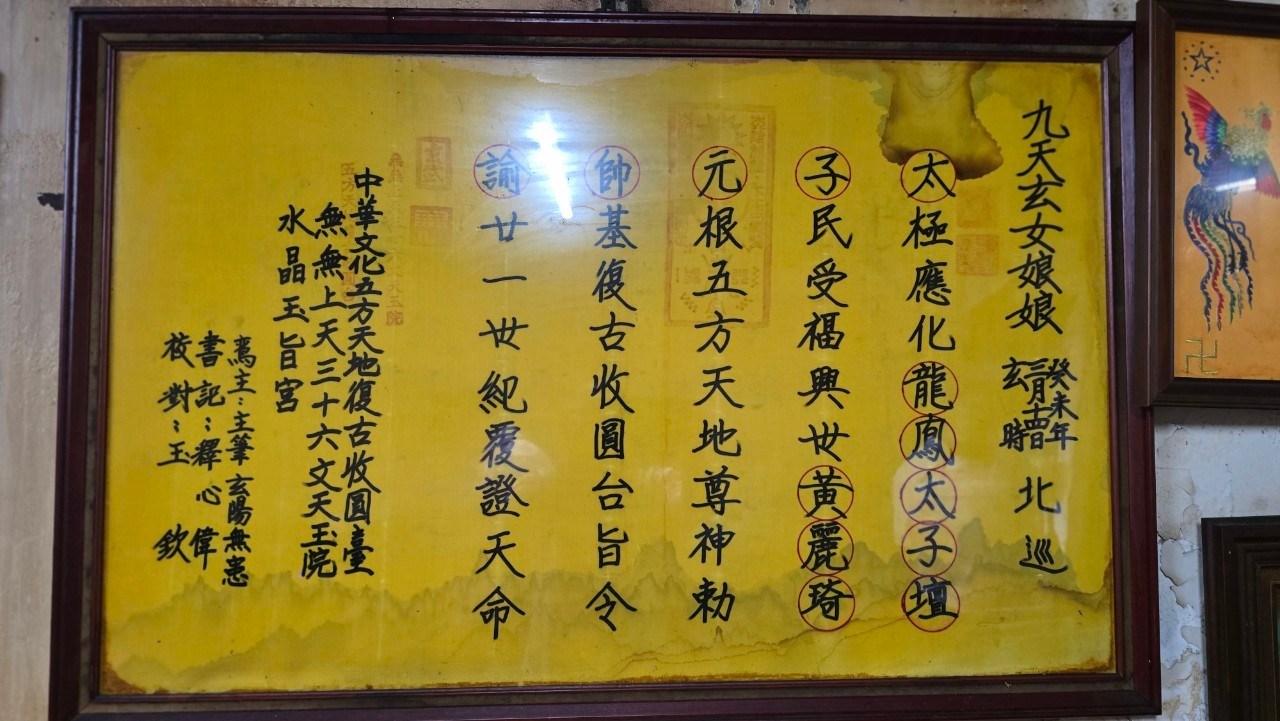 九天玄女娘娘 癸未年二月十四日玄時 北巡
太極應化龍鳳太子壇
子民受福興世黃麗琦
元根五方天地尊神勅
帥基復古收圓台旨令
諭廿一世紀覆證天命
中華文化五方天地復古收圓臺
無無上天三十六文天玉院
水晶玉旨宮
鸞主：主筆玄陽無患
書記：釋心偉
校對：玉欽
卍